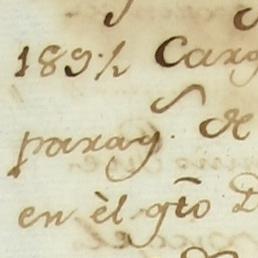 189½ Carg
paraq. de
en èl gto D